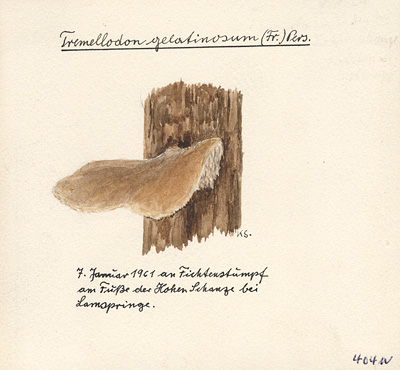 Tremellodon gelatinosum (Fr.) Pers.
KS.
7. Januar 1961 an Fichtenstumpf
am Fuße der Hohen Schanze bei
Lamspringe.
404a